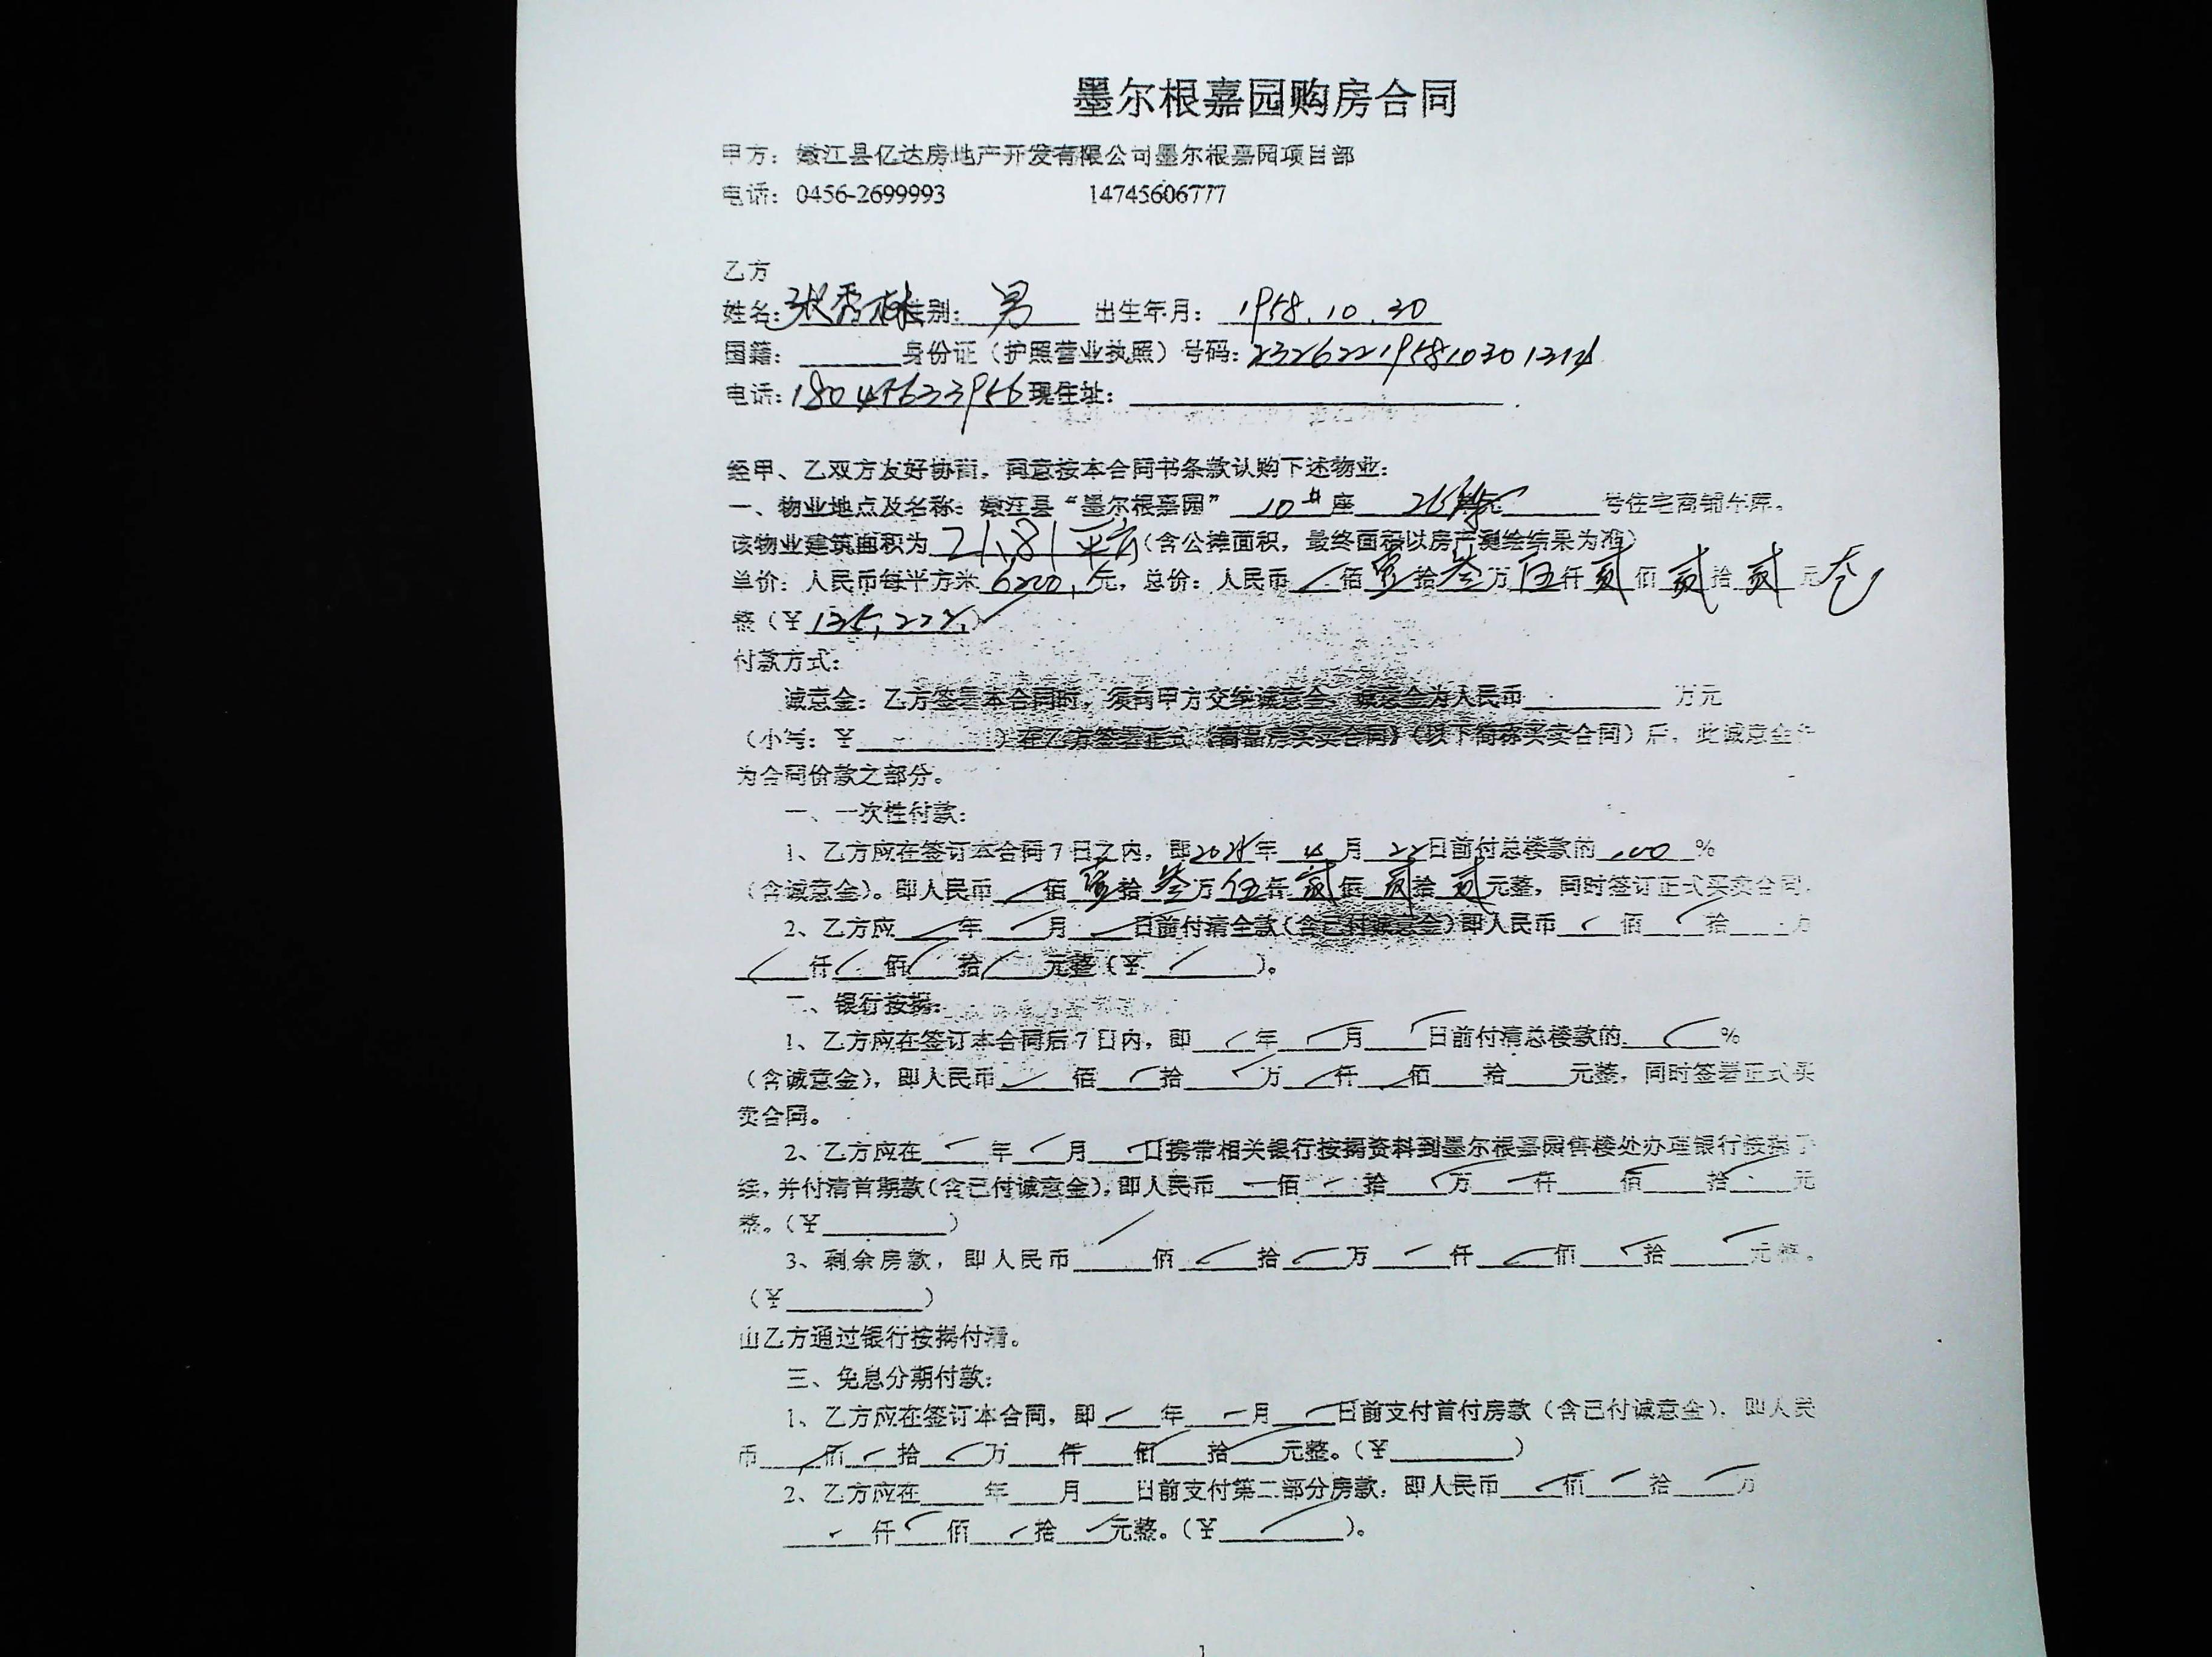 墨尔根嘉园购房合同
甲方：嫩江县亿达房地产开发有限公司墨尔根嘉园项目部
电话：0456-2699993 14745606777
乙方
姓名：张秀林 性别：男 出生年月：1958.10.30
国籍：______身份证（护照营业执照）号码：232622195810301214
电话：18045633956 现住址：______
经甲、乙双方友好协商，同意按本合同书条款认购下述物业：
一、物业地点及名称：嫩江县“墨尔根嘉园” 10# 座 26 号住宅商铺车库。
该物业建筑面积为 21.81平方（含公摊面积，最终面积以房产测绘结果为准）
单价：人民币每平方米 6200 元，总价：人民币 佰 壹 拾 叁 万 伍 仟 贰 佰 贰 拾 贰 元
整（￥135,222）
付款方式：
诚意金：乙方签署本合同时，须向甲方交纳诚意金，诚意金为人民币______万元
（小写：￥______）在乙方签署正式《商品房买卖合同》（以下简称买卖合同）后，此诚意金作
为合同价款之部分。
一、一次性付款：
1、乙方应在签订本合同7日之内，即 年 月 22 日前付总楼款的 100 %
（含诚意金）。即人民币 佰 壹 拾 叁 万 伍 仟 贰 佰 贰 拾 贰 元整，同时签订正式买卖合同。
2、乙方应___年___月___日前付清全款（含已付诚意金）即人民币___佰___拾___万
___仟___佰___拾___元整（￥______）。
二、银行按揭：
1、乙方应在签订本合同后7日内，即___年___月___日前付清总楼款的___%
（含诚意金），即人民币___佰___拾___万___仟___佰___拾___元整，同时签署正式买
卖合同。
2、乙方应在___年___月___日携带相关银行按揭资料到墨尔根嘉园售楼处办理银行按揭手
续，并付清首期款（含已付诚意金），即人民币___佰___拾___万___仟___佰___拾___元
整。（￥______）
3、剩余房款，即人民币___佰___拾___万___仟___佰___拾___元整。
（￥______）
由乙方通过银行按揭付清。
三、免息分期付款：
1、乙方应在签订本合同，即___年___月___日前支付首付房款（含已付诚意金），即人民
币___佰___拾___万___仟___佰___拾___元整。（￥______）
2、乙方应在___年___月___日前支付第二部分房款，即人民币___佰___拾___万
___仟___佰___拾___元整。（￥______）。
1